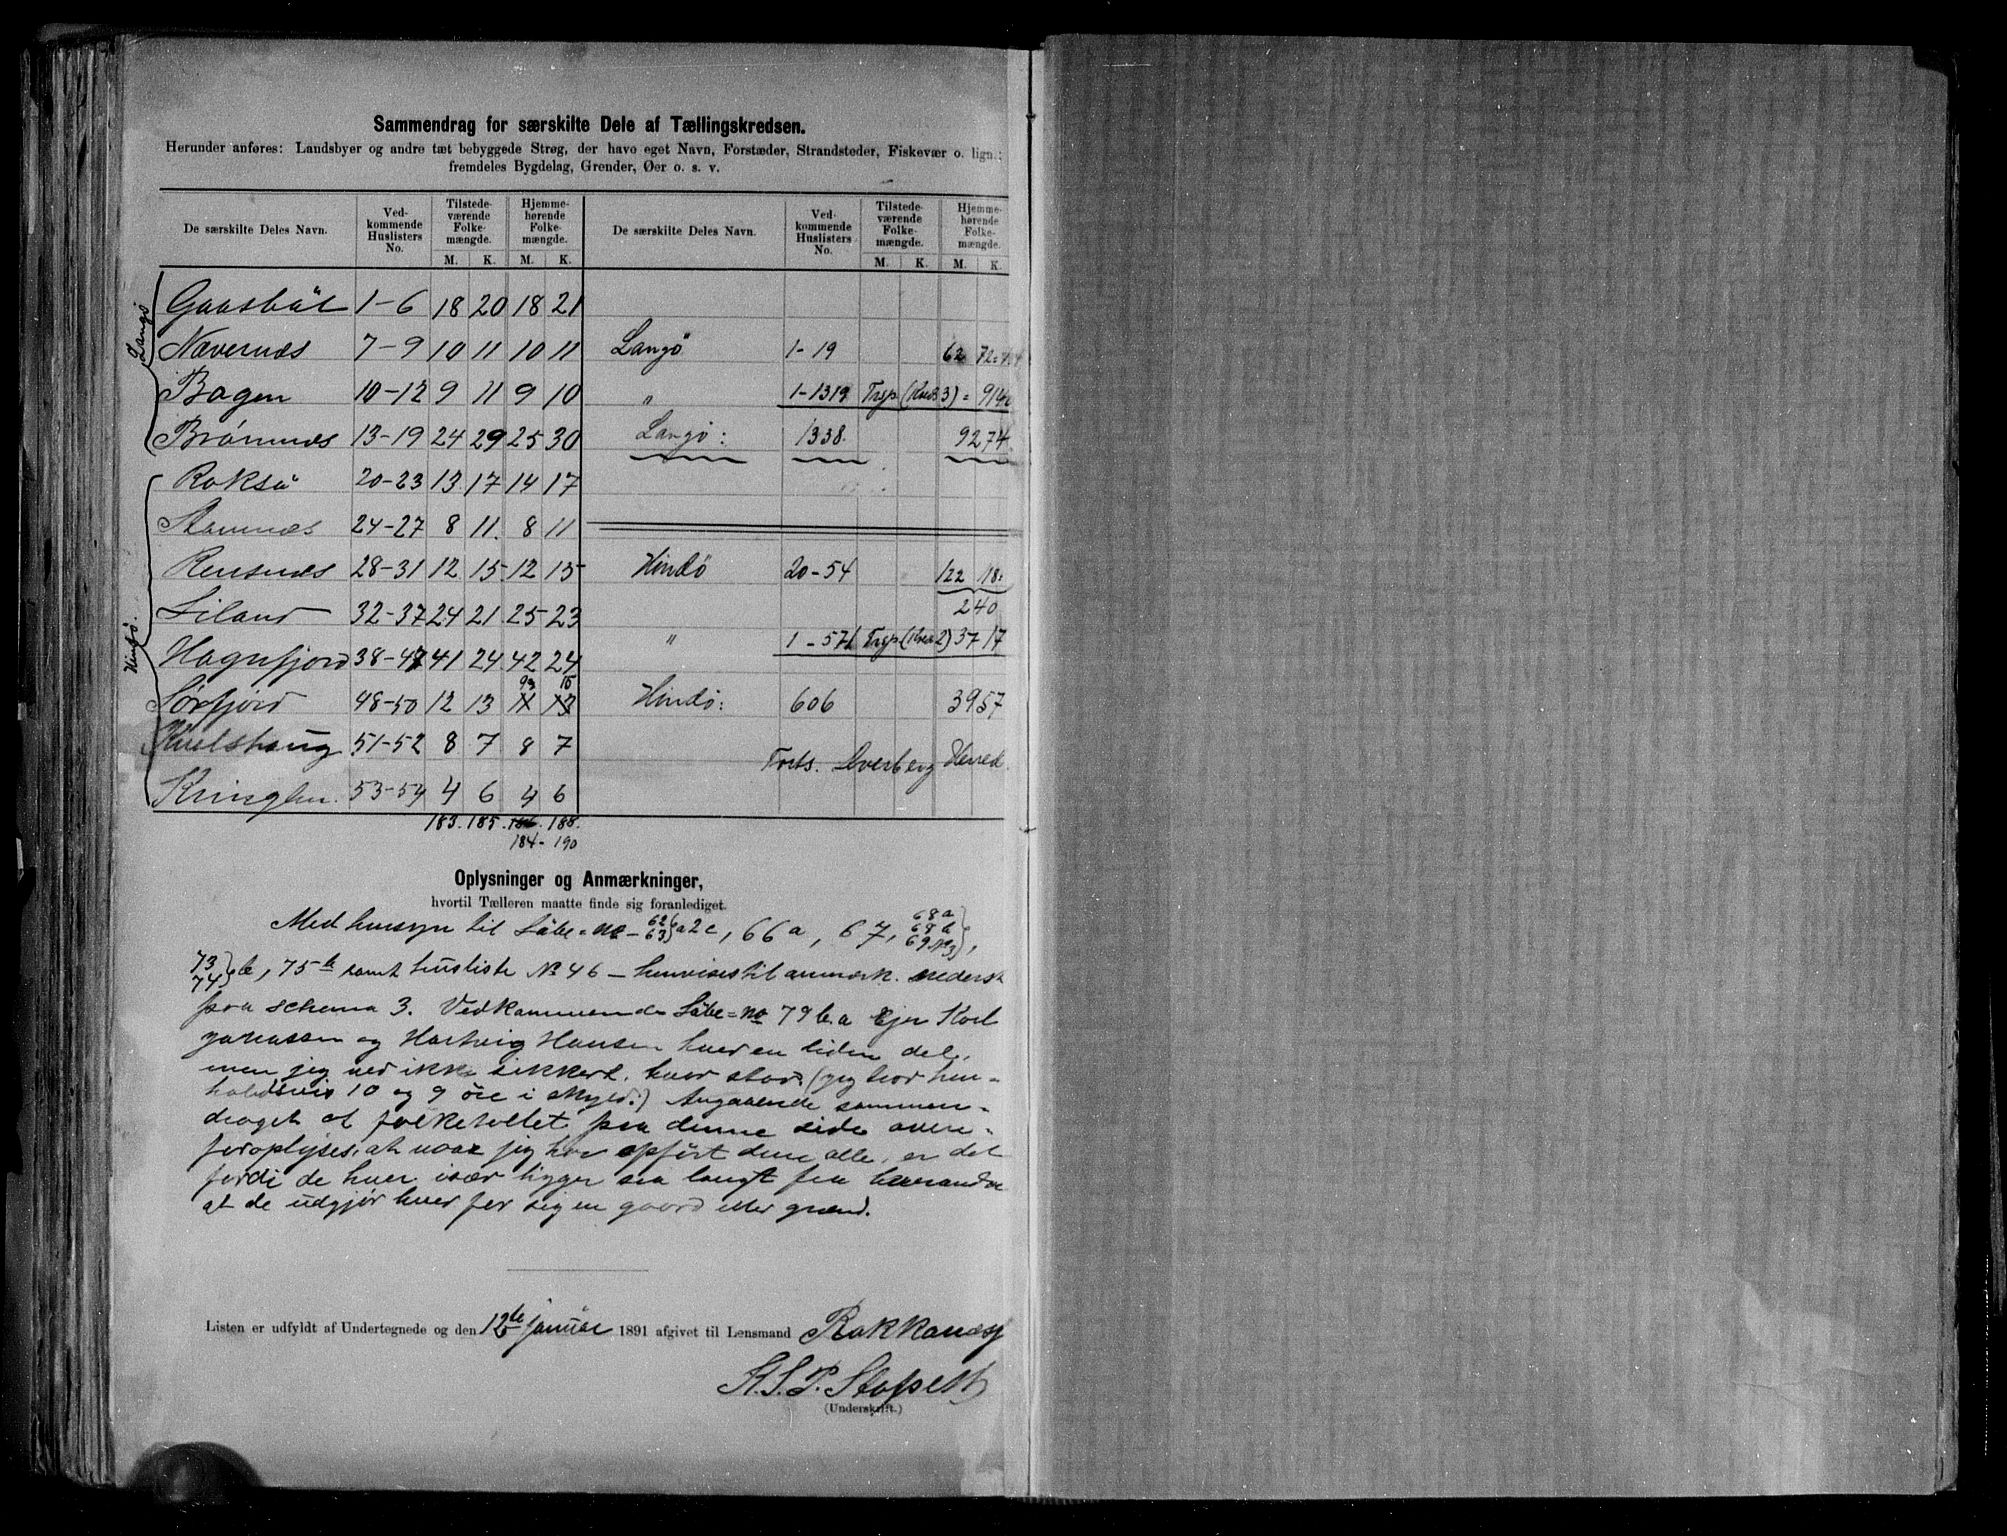 Sammendrag for særskilte Dele af Tællingskredsen.
Herunder anføres: Landsbyer og andre tæt bebyggede Strøg, der have eget Navn, Forstæder, Strandsteder, Fiskevær o. lign.;
fremdeles Bygdelag, Grender, Øer o. s. v.
De særskilte Deles Navn. Ved-kommende Huslisters No. Tilstede-værende Folke-mængde. Hjemme-hørende Folke-mængde. De særskilte Deles Navn. Ved-kommende Huslisters No. Tilstede-værende Folke-mængde. Hjemme-hørende Folke-mængde.
M. K. M. K. M. K. M. K.
Langø
Gaasbøl 1-6 18 20 18 21
Nævernæs 7-9 10 11 10 11 Langø 1-19 62 72
Bogen 10-12 9 11 9 10 " 1-1319 (Kreds 3) =
Brørnnæs 13-19 24 29 25 30 Langø: 1338. 9274
Hindø.
Roksø 20-23 13 17 14 17
Stamnæs 24-27 8 11. 8 11
Rensnæs 28-31 12 15 12 15 Hindø 20-54 122
240
Liland 32-37 24 21 25 23
" 1-571 (Kreds 2) 37 17
Hognfjord 38-47 41 24 42 24
93 15
Sørfjord 48-50 12 13 11 13 Hindø: 606 3957
51-52 8 7 8 7
Forts. Dverberg Herred.
Kringlen. 53-54 4 6 4 6
183. 185. 188.
184 - 190
Oplysninger og Anmærkninger,
hvortil Tælleren maatte finde sig foranlediget.
Med hensyn til Løbe-no 62 63 a2c, 66a, 67, 68a 68b
73 74 b, 75b samt husliste No 46 – henvises til anmærk. nederst
paa schema 3. Vedkommende Løbe=no 79 b.a Ejer Korl
og Hartvig Hansen hver en liden del,
men jeg ved ikke sikkert, hvor stor. (jeg tror hen-
holdsvis 10 og 9 øre i skyld.) Angaaende sammen-
draget af folketallet paa denne side
oplyses, at naar jeg har opført dem alle, er det
fordi de hver især ligger saa langt fra hverandre
at de udgjør hver for sig en gaard eller grænd.
Listen er udfyldt af Undertegnede og den 12te januar 1891 afgivet til Lensmand
(Underskrift.)